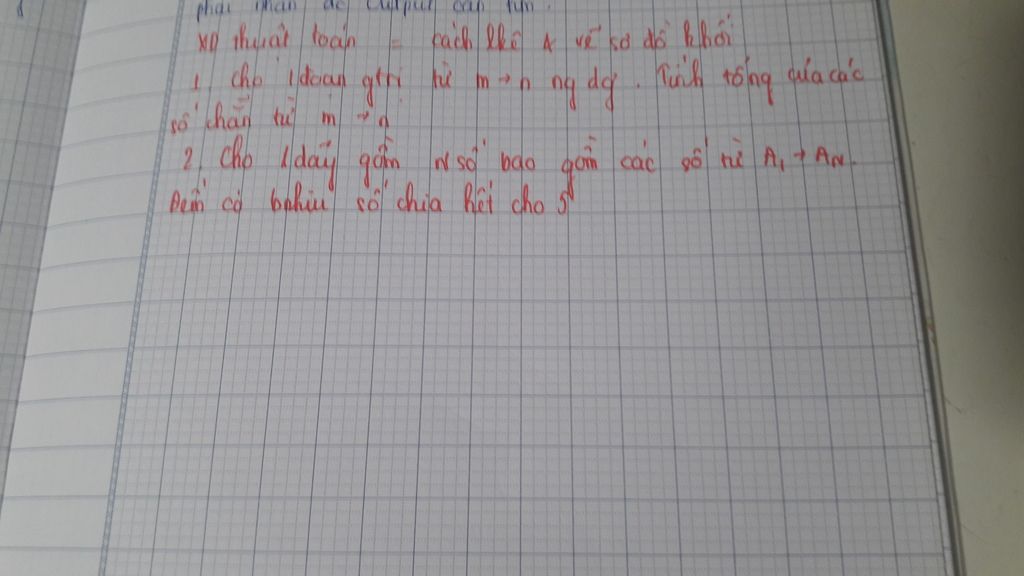 phải nhận để Output cần tìm.
XĐ thuật toán = cách lkê & vẽ sơ đồ khối
1, Cho 1 đoạn gtrị từ m → n ng dg. Tính tổng của các
số chẵn từ m → n
2, Cho 1 dãy gồm N số bao gồm các số từ A₁ → Aɴ.
Đếm có bnhiu số chia hết cho 5